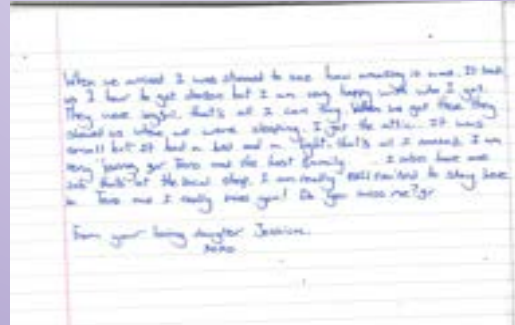 When we arrived I was shocked to see how amazing it was. It took
us 1 hour to get chosen but I am very happy with who I got.
They were that's all I can say. When we got there they
showed us where we were sleeping. I got the attic. It was
small but it had a bed and a light that's all I needed. I am
very and the best family I also have one
job that's at the local shop. I am really to stay here
in and I really miss you! Do you miss me?
From your loving daughter Jessica.
xoxo